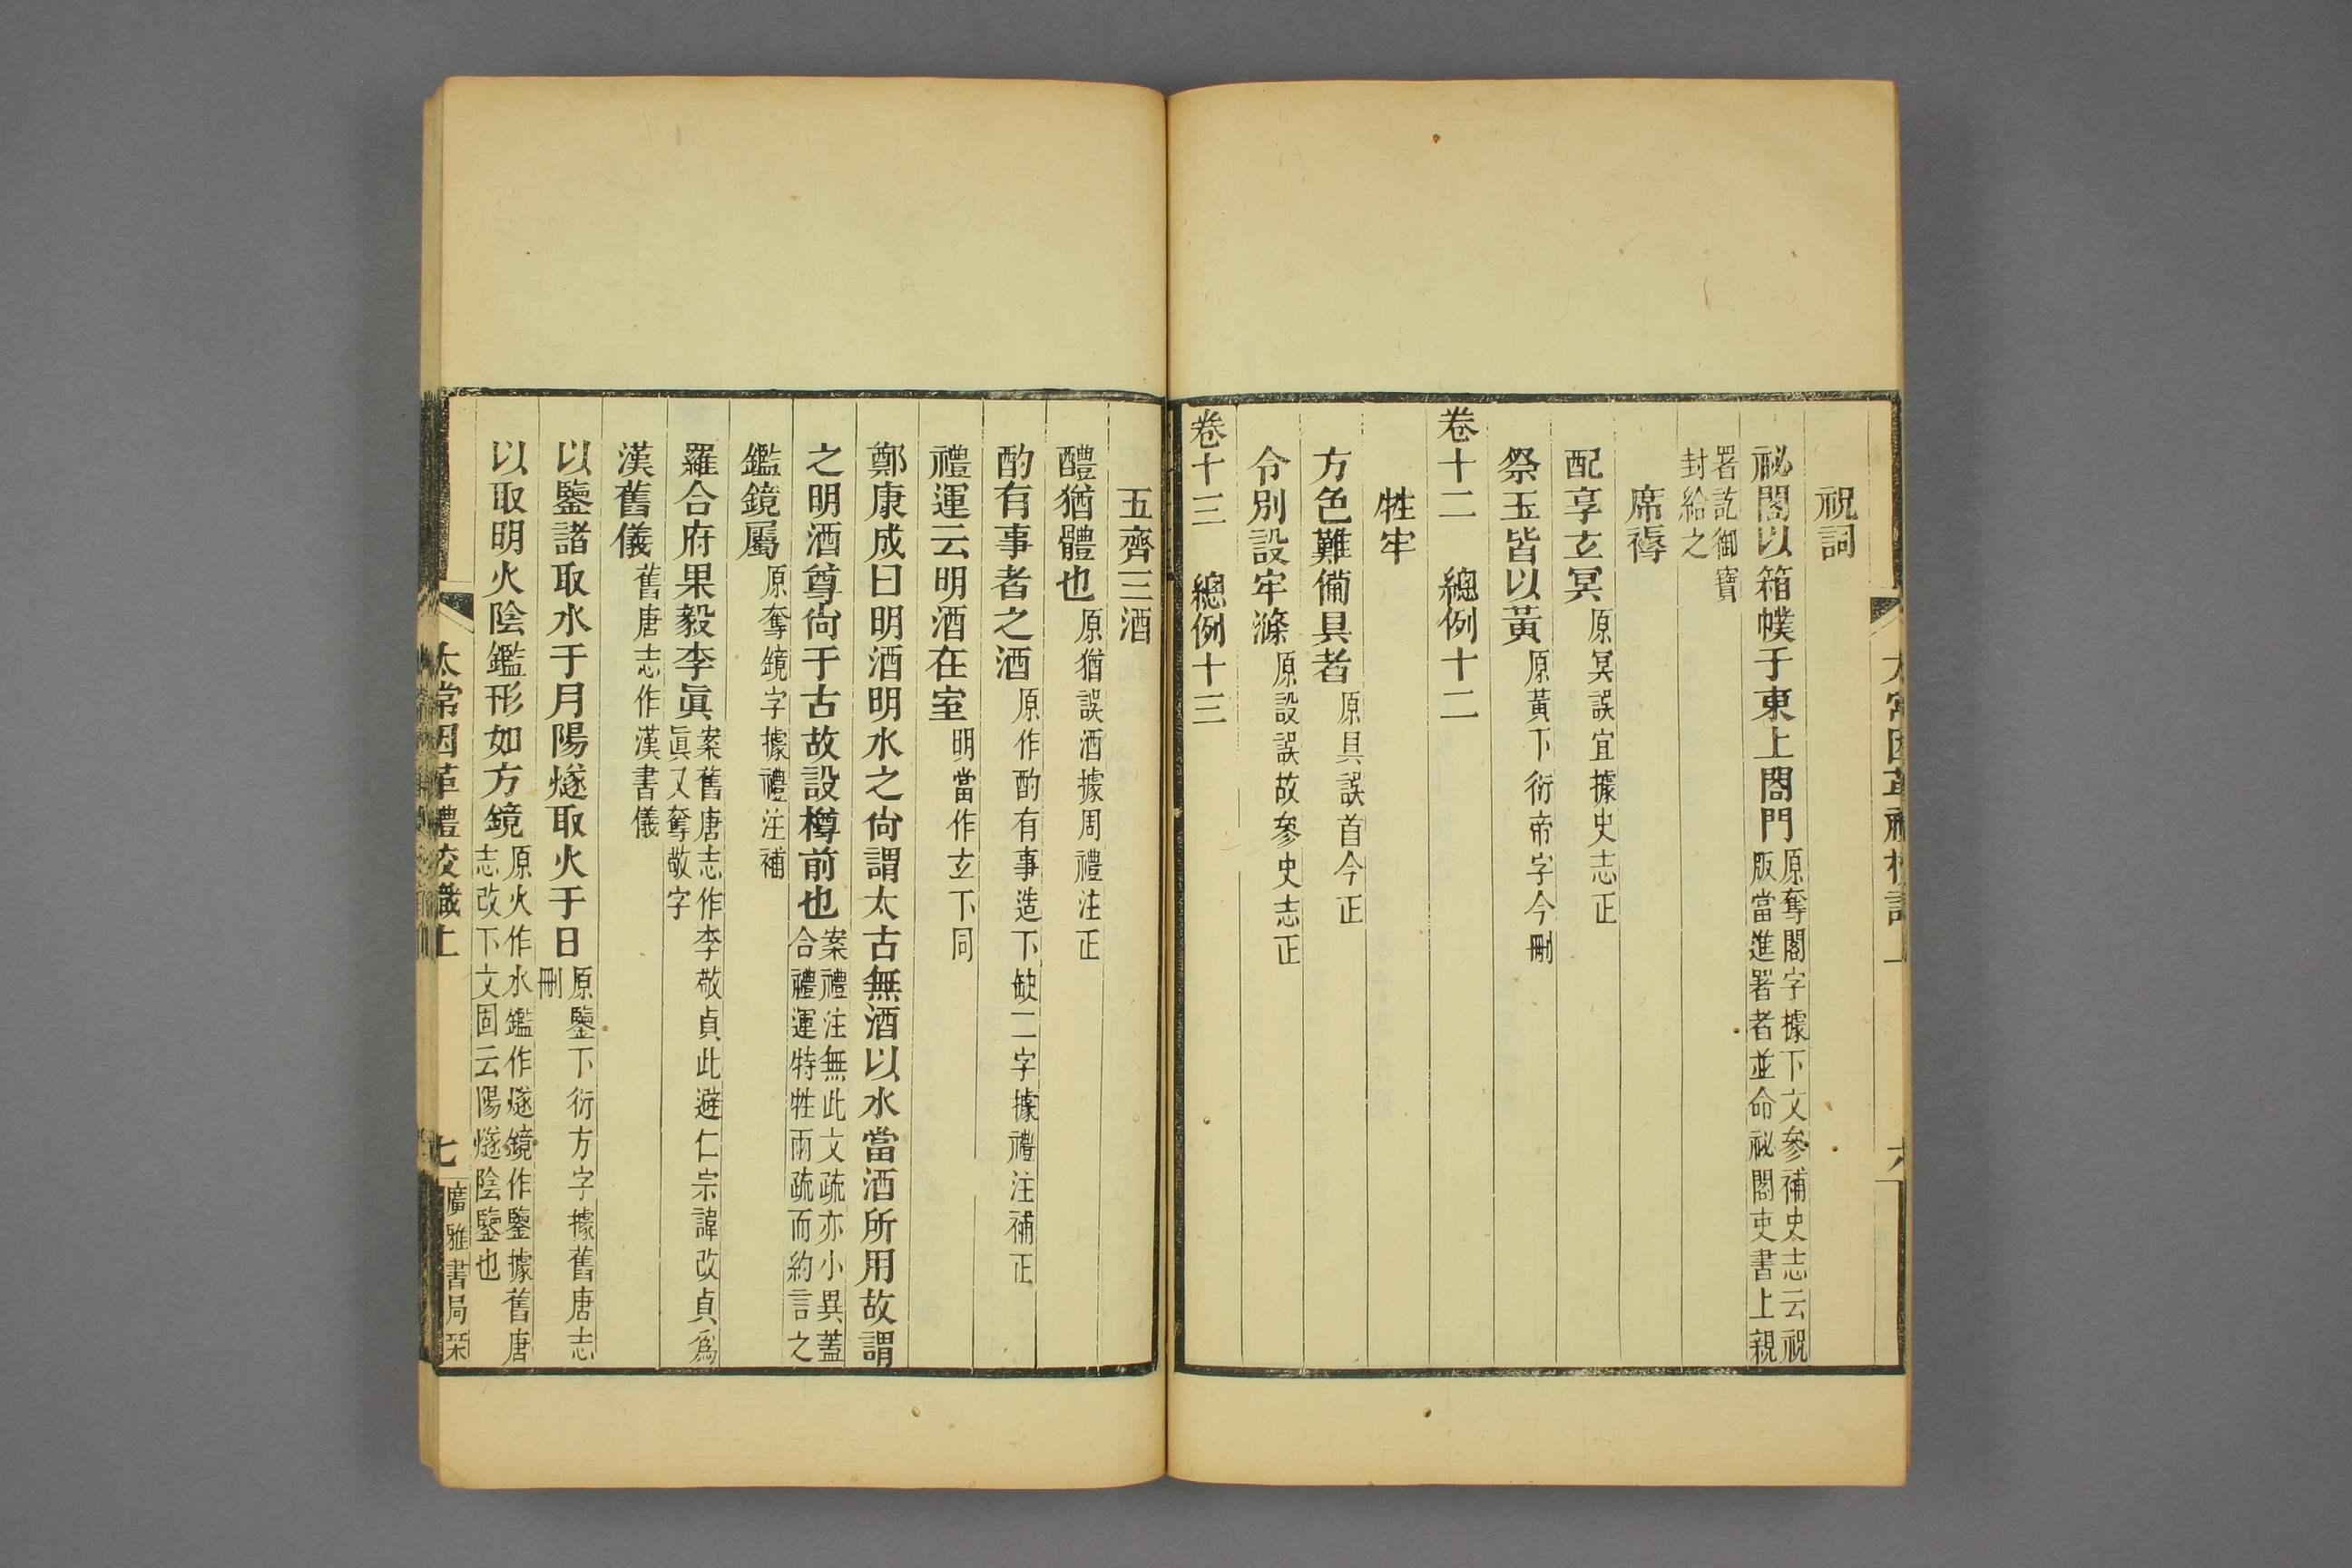 太常因革禮校識上
六
祝詞
祕閣以箱幞于東上閤門原奪閣字據下文參補史志云祝
版當進署者並命祕閣吏書上親
署訖御寶
封給之
席褥
配享玄冥原冥誤宜據史志正
祭玉皆以黃原黃下衍帝字今刪
卷十二　總例十二
牲牢
方色難備具者原具誤首今正
令別設牢滌原設誤故參史志正
卷十三　總例十三
五齊三酒
醴猶體也原猶誤酒據周禮注正
酌有事者之酒原作酌有事造下缺二字據禮注補正
禮運云明酒在室明當作玄下同
鄭康成曰明酒明水之尙謂太古無酒以水當酒所用故謂
之明酒尊尙于古故設樽前也案禮注無此文疏亦小異蓋
合禮運特牲兩疏而約言之
鑑鏡屬原奪鏡字據禮注補
羅合府果毅李眞案舊唐志作李敬貞此避仁宗諱改貞爲
眞又奪敬字
漢舊儀舊唐志作漢書儀
以鑒諸取水于月陽燧取火于日原鑒下衍方字據舊唐志
刪
以取明火陰鑑形如方鏡原火作水鑑作燧鏡作鑒據舊唐
志改下文固云陽燧陰鑒也
太常因革禮校識上
七
廣雅書局栞